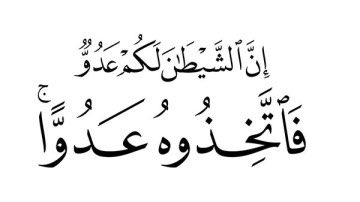 إِنَّ ٱلشَّيْطَٰنَ لَكُمْ عَدُوٌّ
فَٱتَّخِذُوهُ عَدُوًّا ۚ